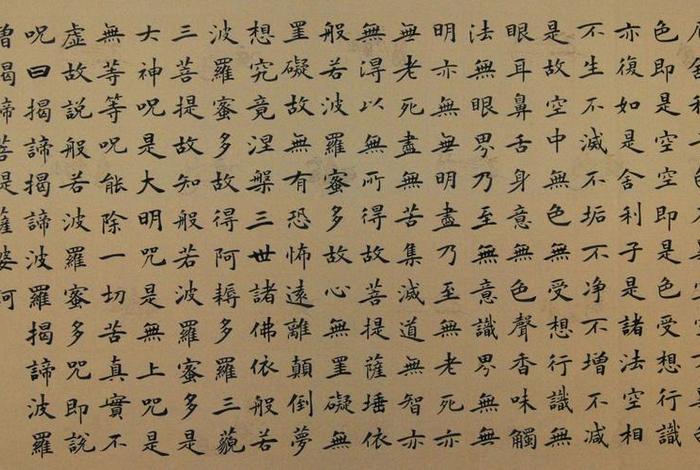 色即是空空即是色受想行識
亦復如是舍利子是諸法空相
不生不滅不垢不净不增不減
是故空中無色無受想行識無
眼耳鼻舌身意無色聲香味觸
法無眼界乃至無意識界無無
明亦無無明盡乃至無老死亦
無老死盡無苦集滅道無智亦
無得以無所得故菩提薩埵依
般若波羅蜜多故心無罣礙無
罣礙故無有恐怖遠離顛倒夢
想究竟涅槃三世諸佛依般若
波羅蜜多故得阿耨多羅三藐
三菩提故知般若波羅蜜多是
大神呪是大明呪是無上呪是
無等等呪能除一切苦真實不
虛故説般若波羅蜜多呪即說
呪曰揭諦揭諦波羅揭諦波羅
僧揭諦菩提薩婆訶